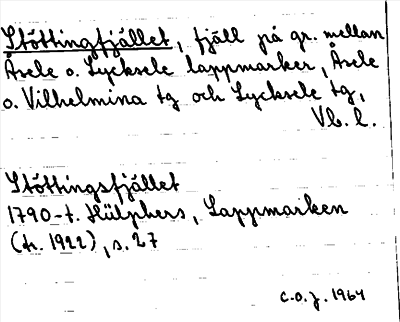 Stöttingfjället, fjäll på gr. mellan
Åsele o. Lycksele lappmarker, Åsele
o. Vilhelmina tg och Lycksele tg,
Vb. l.
Stöttingsfjället
1790-t. Hülphers, Lappmarken
(tr. 1922), s. 27
C.O.J. 1964